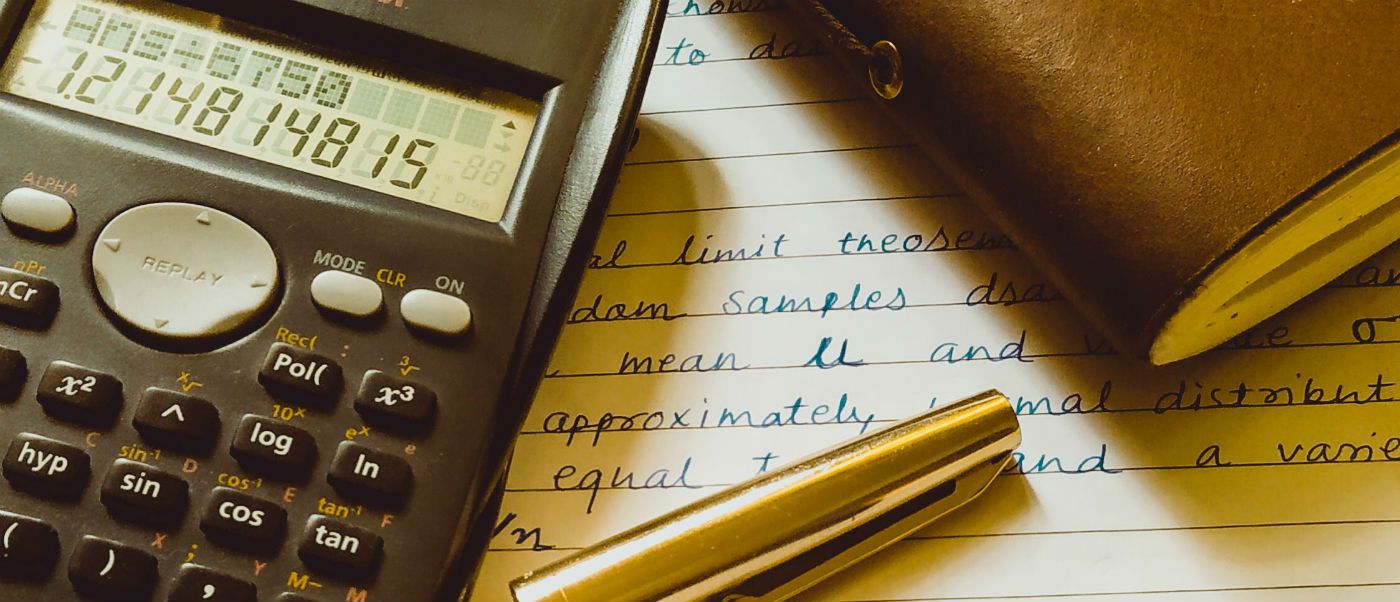 Ans÷6750
-1.214814815
ALPHA
REPLAY
MODE CLR ON
nPr
nCr
Rec( :
Pol(
x²
x√
^
³√
x³
10ˣ
log
eˣ e
ln
hyp
C
sin⁻¹ D
sin
cos⁻¹ E
cos
tan⁻¹ F
tan
(
X
)
; Y
,
M- M
to
limit theorem
samples
mean μ and σ
approximately distribut
equal and a varie
/n